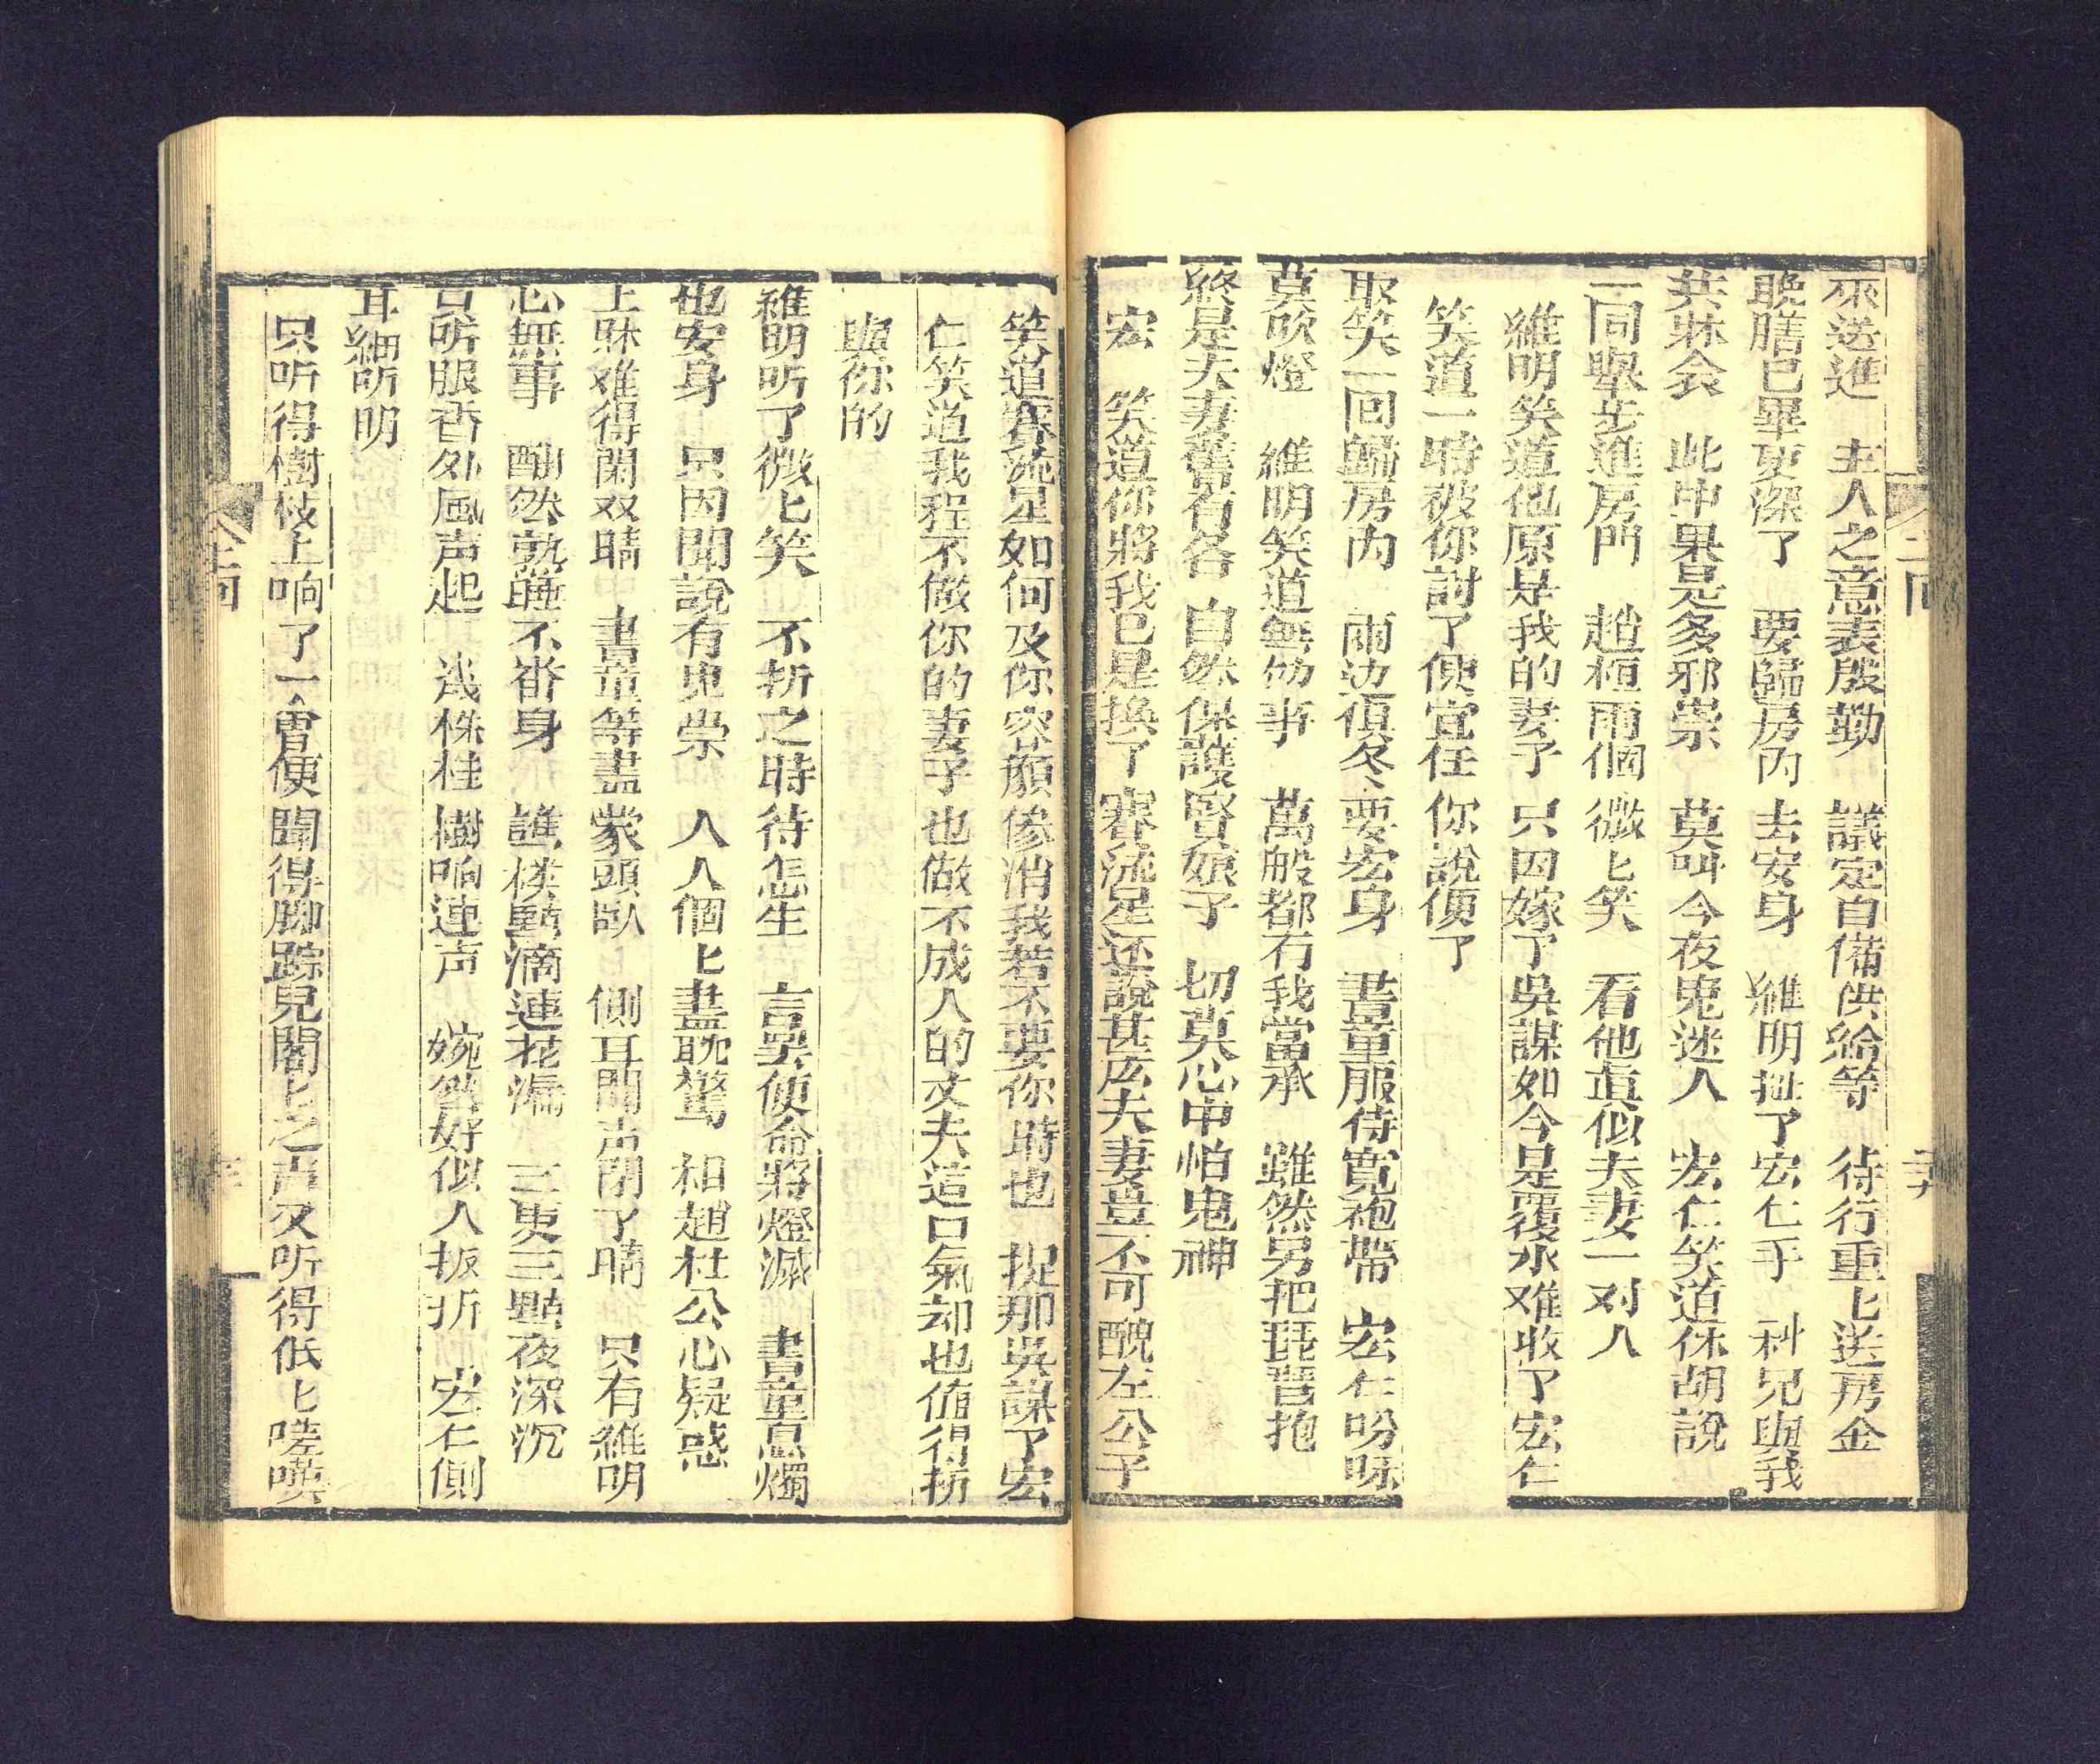 來送進　主人之意表殷勤　議定自備供給等　待行重匕送房金
晚膳已畢更深了　要歸房內去安身　維明扯了宏仁手　科兄與我
共牀衾　此中果是多邪祟　莫呌今夜鬼迷人　宏仁笑道休胡說
一同舉步進房門　趙桓兩個微匕笑　看他真似夫妻一对人
維明笑道他原是我的妻子　只因嫁了吳謀如今是覆水难收了宏仁
笑道一時被你討了便宜任你說便了
取笑一回歸房內　兩边俱各要安身　書童服侍寬袍帶　宏仁吩咐
莫吹燈　維明笑道無妨事　萬般都有我當承　雖然另把琵琶抱
終是夫妻舊有名　自然保護賢娘子　切莫心中怕鬼神
宏　笑道你將我已是換了賽流星还說甚広夫妻豈不可醜左公子
笑道賽流星如何及你容顏俊消我若不要你時也　捉那吳謀了宏
仁笑道我程不做你的妻子也做不成人的丈夫這口氣却也值得折
與你的
維明听了微匕笑　不折之時待怎生　言畢便命將燈滅　書童息燭
也安身　只因聞說有鬼祟　人人個匕盡耽驚　和趙杜公心疑惑
上牀难得閑双睛　書童等盡蒙頭臥　側耳聞声閉了睛　只有維明
心無事　酣然熟睡不畨身　譙樓點滴連花漏　三更三點夜深沉
言听服香外風声起　幾株桂樹响連声　婉然好似人扳折　宏仁側
耳細听明
只听得樹枝上响了一會便聞得脚踪兒閣匕之声又听得低匕嗟嘆